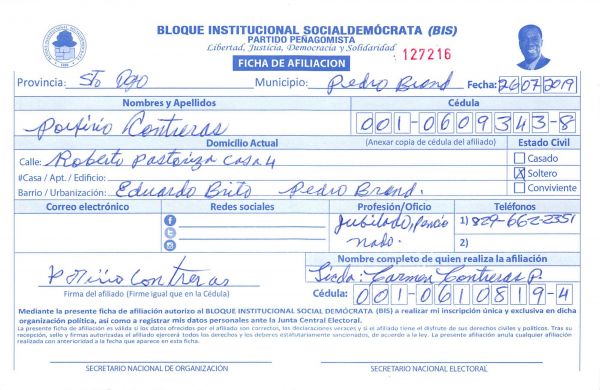 BLOQUE INSTITUCIONAL SOCIALDEMÓCRATA (BIS)
PARTIDO PEÑAGOMISTA
Libertad, Justicia, Democracia y Solidaridad
FICHA DE AFILIACION
127216
Provincia: Sto Dgo Municipio: Pedro Brand Fecha: 26/07/2019
Nombres y Apellidos Cédula
Porfirio Contreras 001-0609343-8
Domicilio Actual (Anexar copia de cédula del afiliado) Estado Civil
Calle: Roberto Pastoriza casa 4
Casado
#Casa / Apt. / Edificio:
X Soltero
Barrio / Urbanización: Eduardo Brito Pedro Brand.
Conviviente
Correo electrónico Redes sociales Profesión/Oficio Teléfonos
Jubilado, pencio
nado.
1) 829-662-2351
2)
Nombre completo de quien realiza la afiliación
Licda: Carmen Contreras P.
Porfirio Contreras
Firma del afiliado (Firme igual que en la Cédula)
Cédula: 001-0610819-4
Mediante la presente ficha de afiliación autorizo al BLOQUE INSTITUCIONAL SOCIAL DEMÓCRATA (BIS) a realizar mi inscripción única y exclusiva en dicha
organización política, así como a registrar mis datos personales ante la Junta Central Electoral.
La presente ficha de afiliación es válida si los datos ofrecidos por el afiliado son correctos, las declaraciones veraces y si el afiliado tiene el disfrute de sus derechos civiles y políticos. Tras su
recepción, sello y firmas autorizadas el afiliado ejercerá todos los derechos y los deberes estatutariamente sancionados, de acuerdo a la ley. La presente afiliación anula cualquier afiliación
realizada con anterioridad a la fecha que aparece en esta ficha.
SECRETARIO NACIONAL DE ORGANIZACIÓN SECRETARIO NACIONAL ELECTORAL